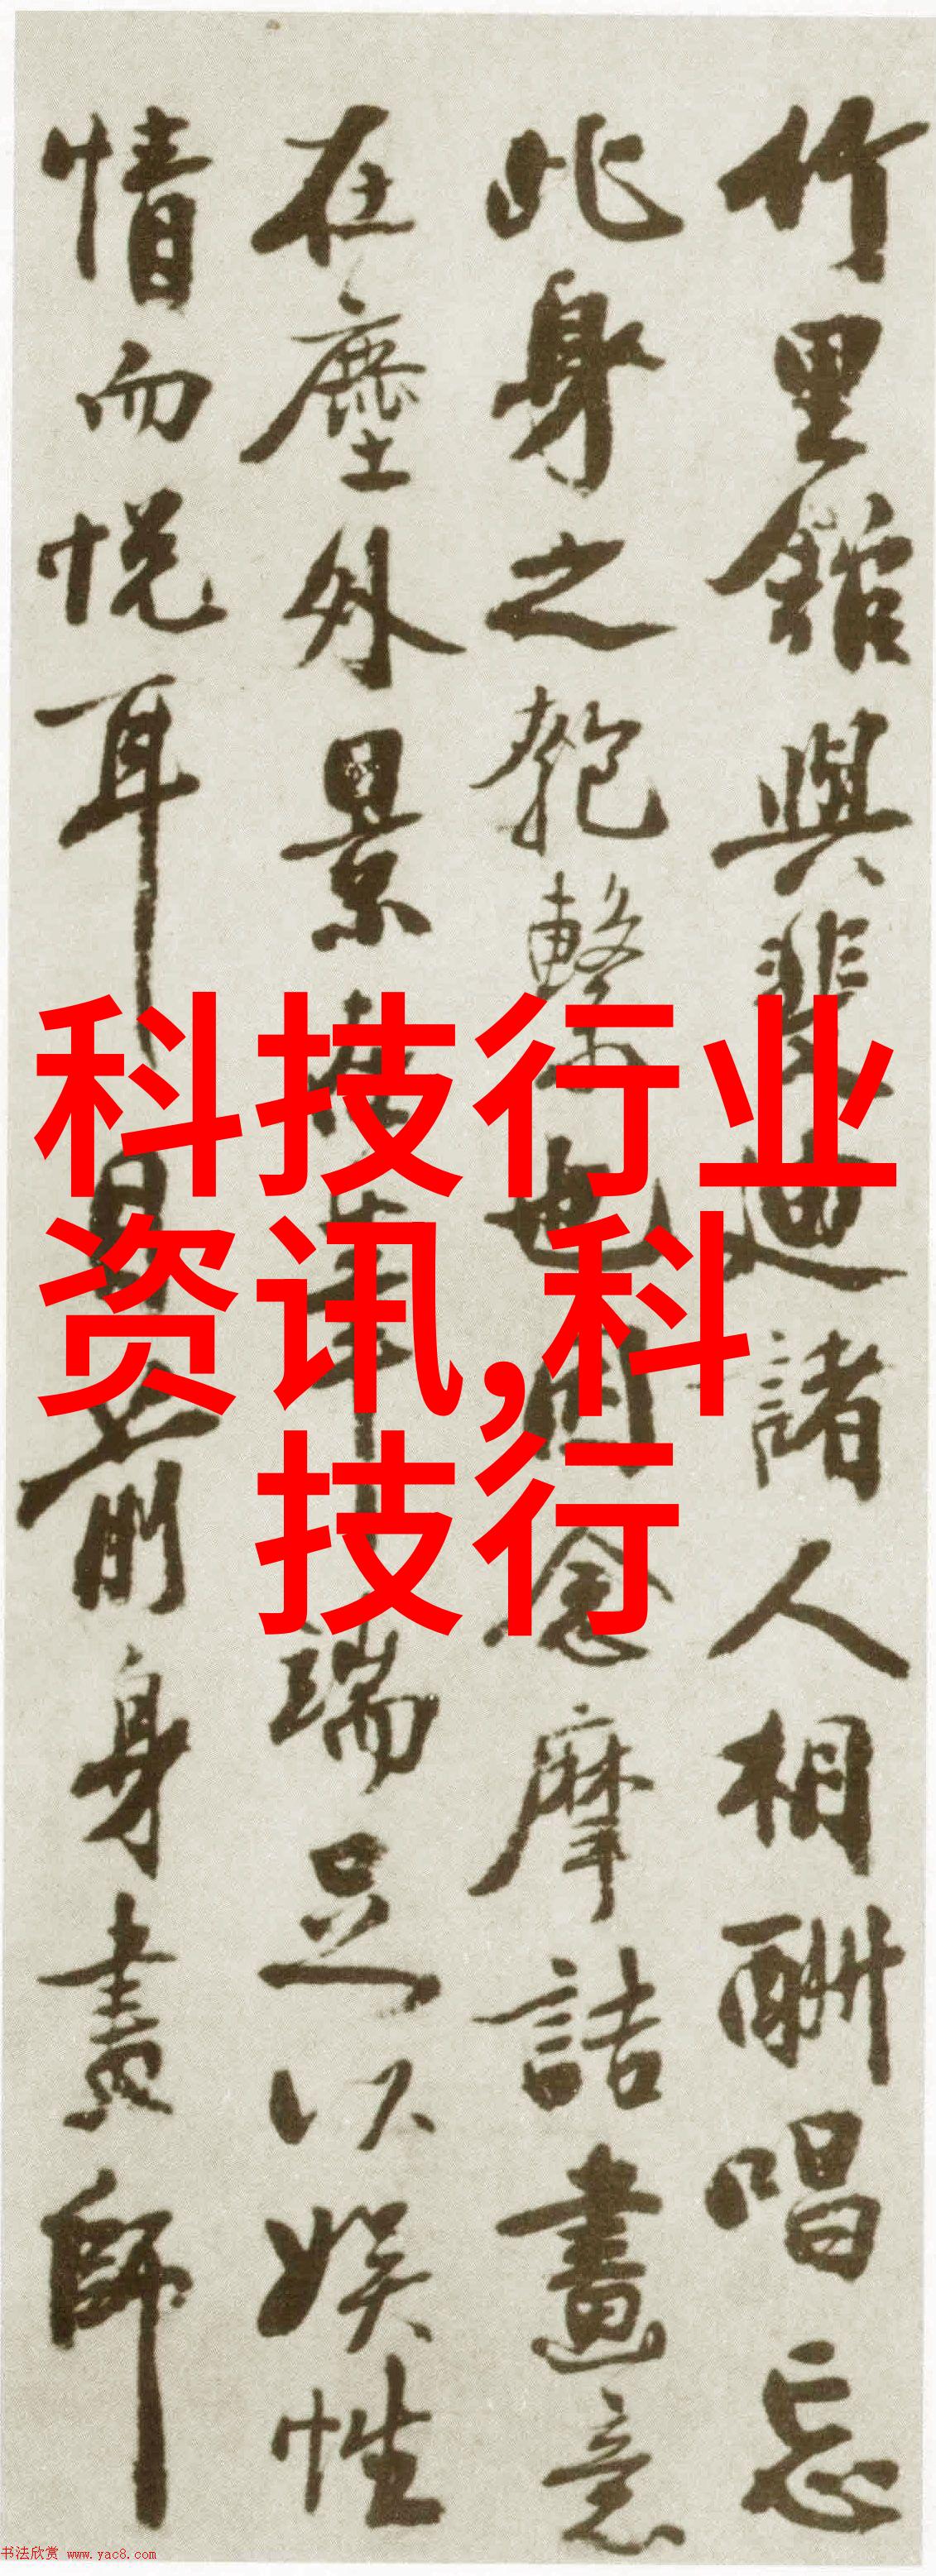 竹里館與裴迪諸人相酬唱忘
此身之匏繫也因念摩詰畫意
在塵外景在筆端足以娛性
情而悦耳目前身畫師
科技行业
资讯,科
技行
书法欣赏 www.yac8.com